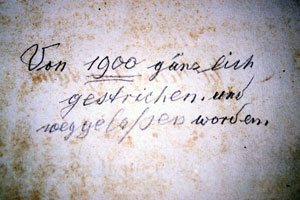 Von 1900 gänzlich
gestrichen. und
weggelaßen worden.